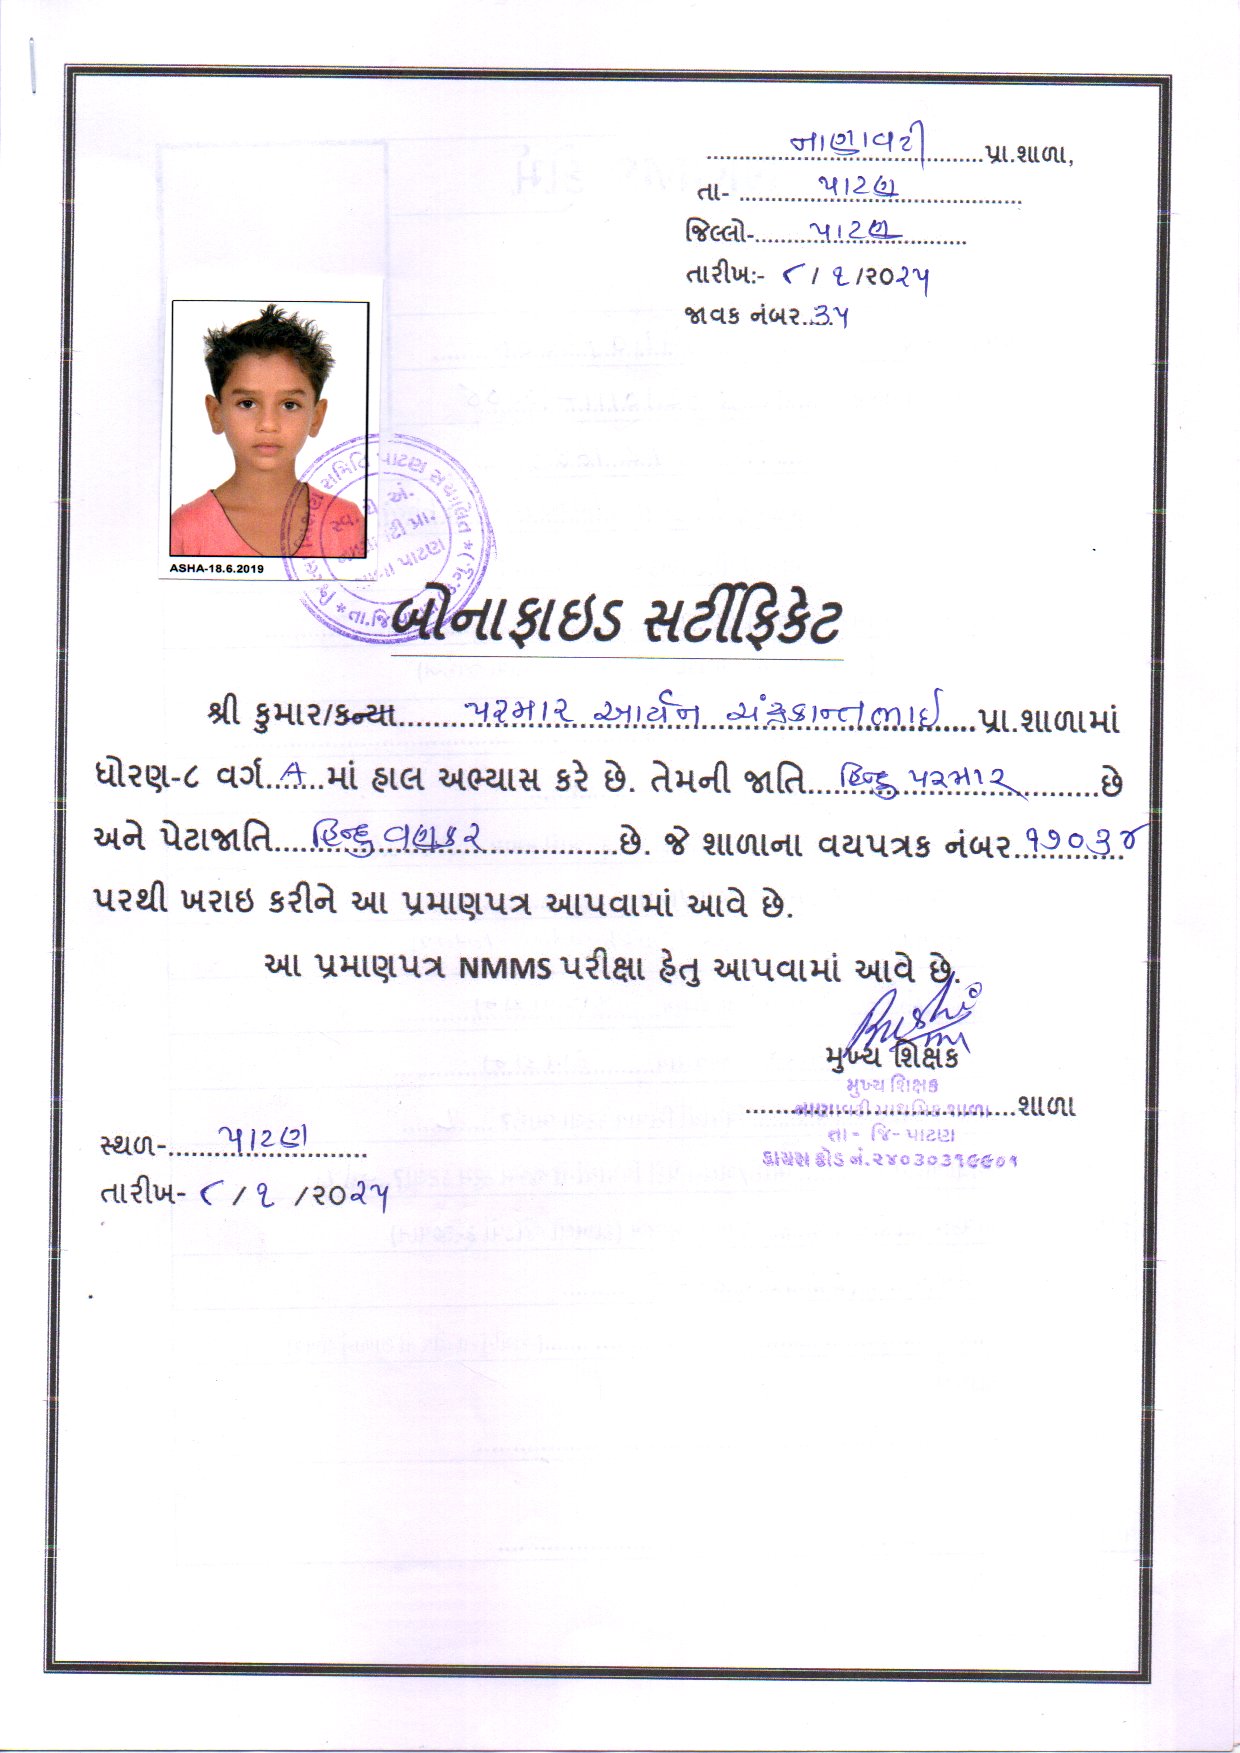 નાણાવટી પ્રા.શાળા,
તા- પાટણ
જિલ્લો- પાટણ
તારીખ:- ૮ / ૧ /૨૦૨૫
જાવક નંબર..૩૫
ASHA-18.6.2019
બોનાફાઇડ સર્ટીફિકેટ
શ્રી કુમાર/કન્યા પરમાર આર્યન ચંદ્રકાન્તભાઈ પ્રા.શાળામાં
ધોરણ-૮ વર્ગ A માં હાલ અભ્યાસ કરે છે. તેમની જાતિ હિન્દુ પરમાર છે
અને પેટાજાતિ હિન્દુ વણકર છે. જે શાળાના વયપત્રક નંબર ૧૭૦૩૪
પરથી ખરાઇ કરીને આ પ્રમાણપત્ર આપવામાં આવે છે.
આ પ્રમાણપત્ર NMMS પરીક્ષા હેતુ આપવામાં આવે છે.
મુખ્ય શિક્ષક
મુખ્ય શિક્ષક
શાળા
તા - જિ- પાટણ
સ્થળ- પાટણ
તારીખ- ૮ / ૧ /૨૦૨૫